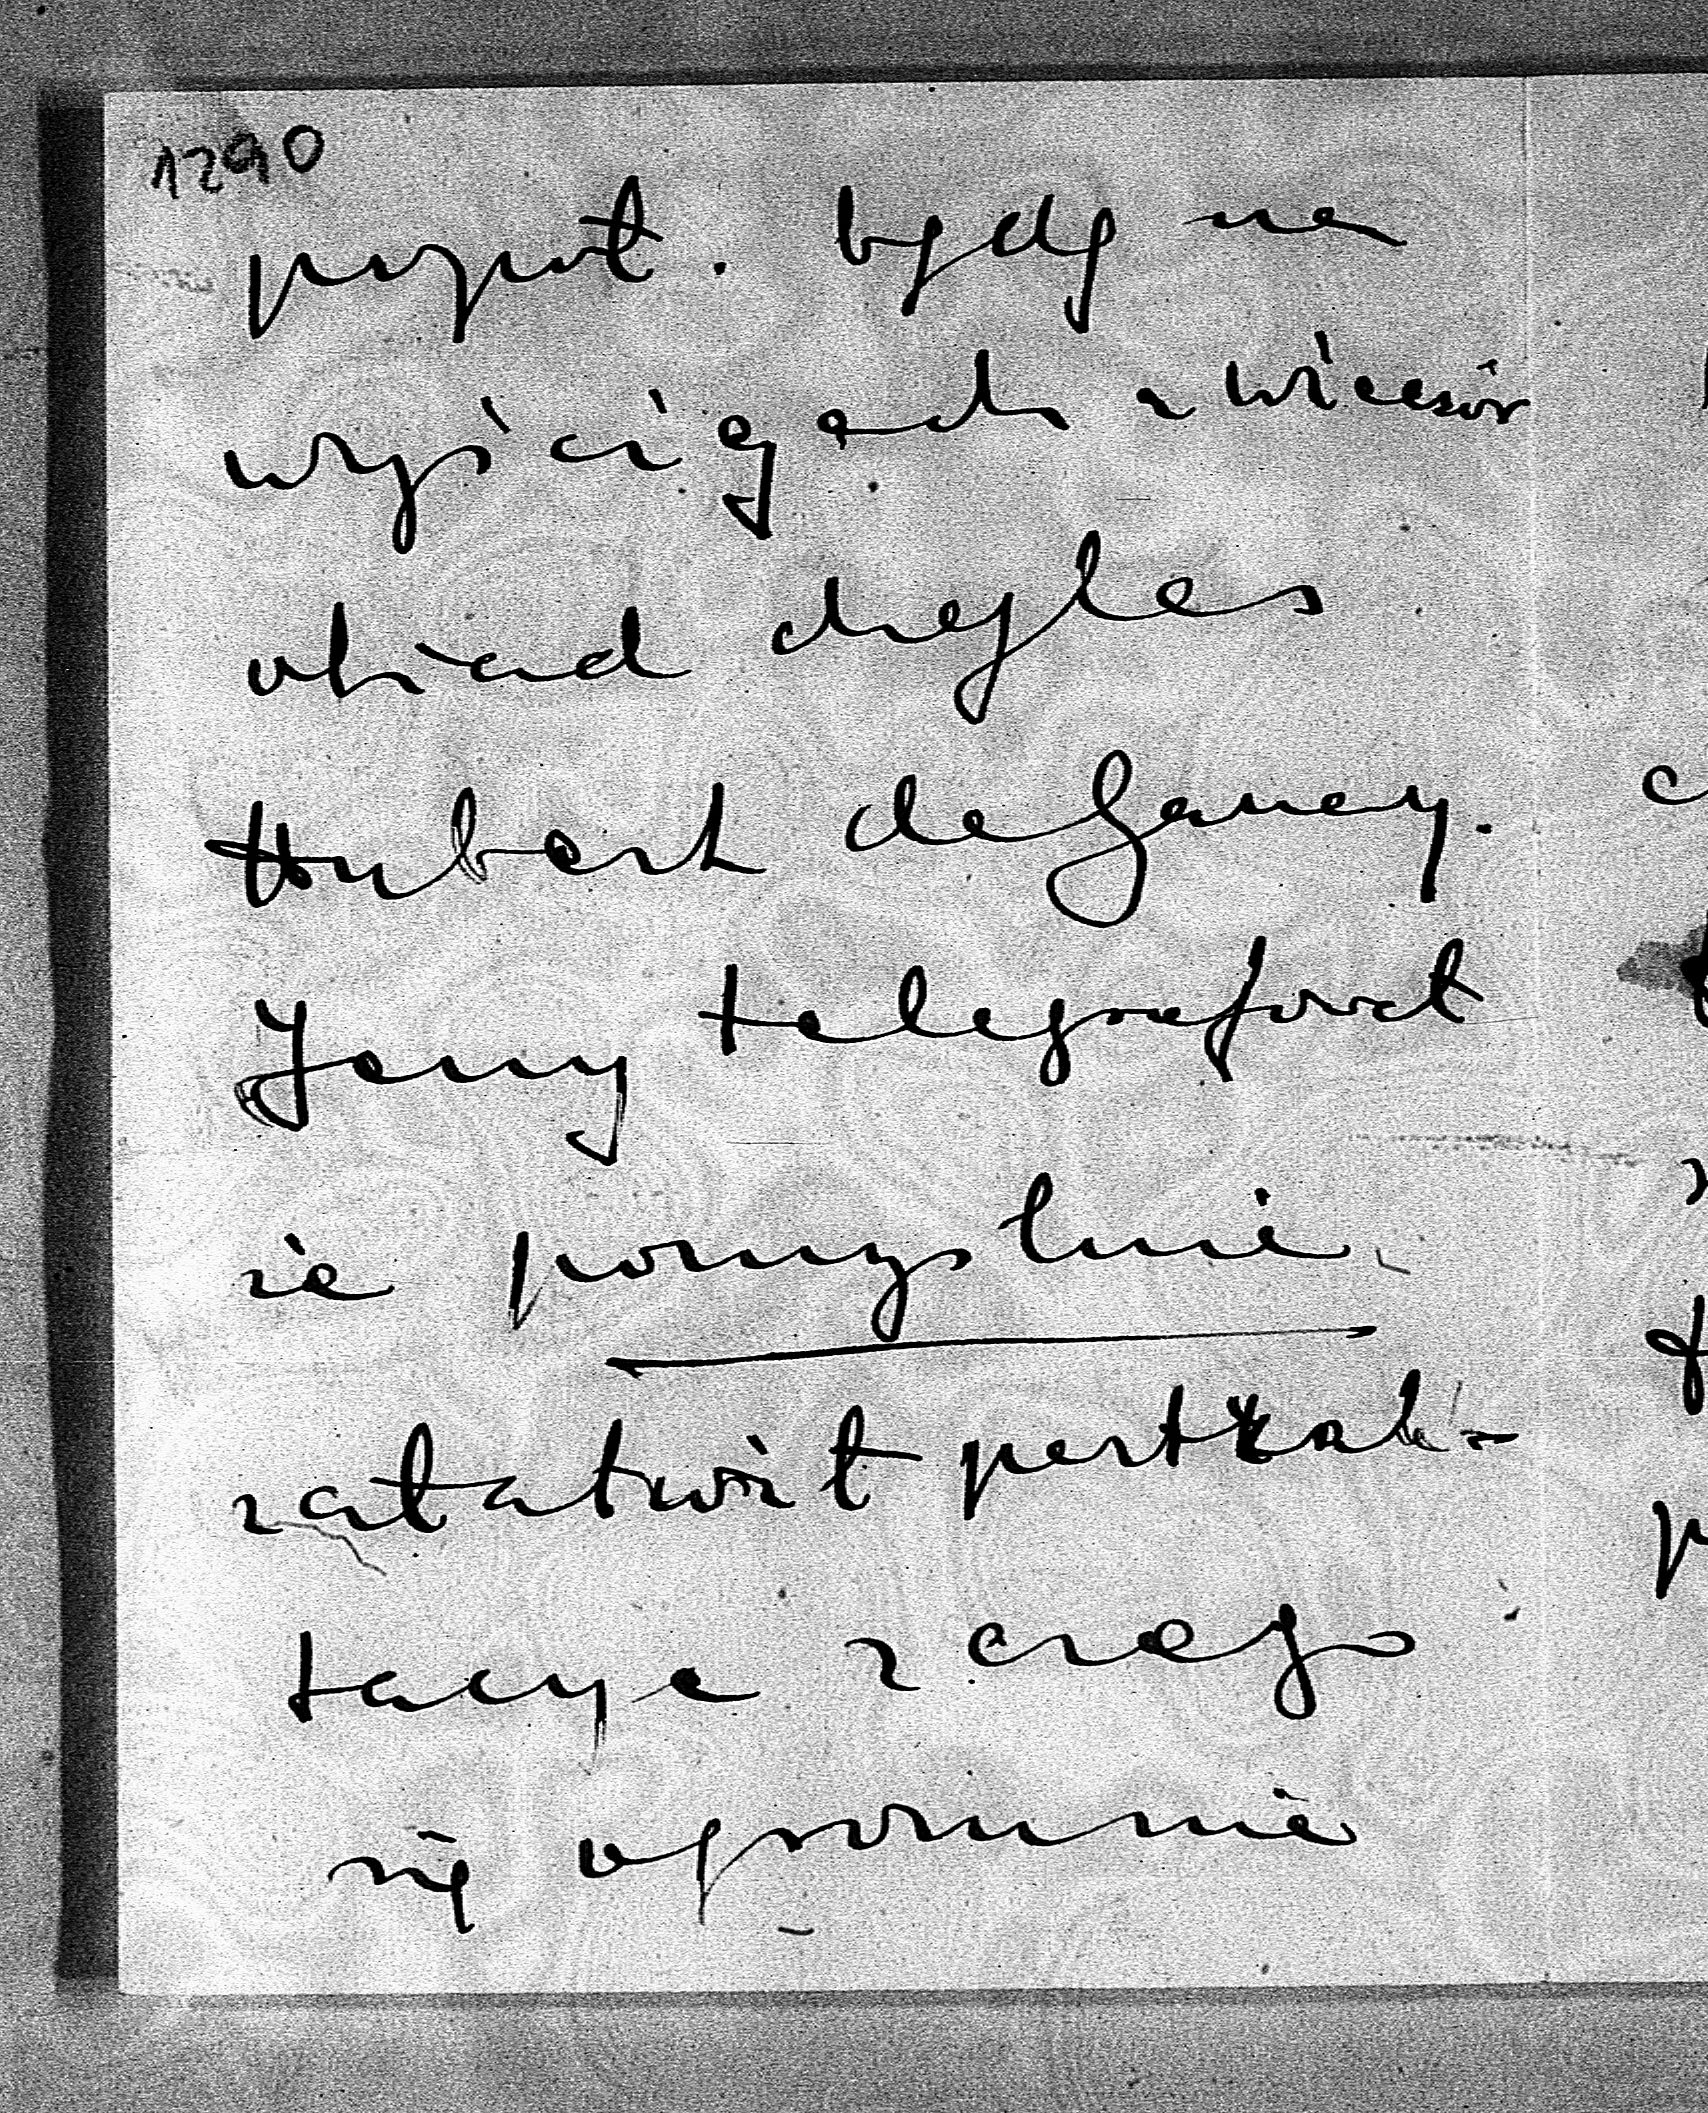 1290
popoł. będę na
wyścigach a wieczór
obiad chez les
Hubert de Ganay.
Jerzy telegrafował
że pomyślnie
załatwił pertrak-
tacye z czego
się ogromnie